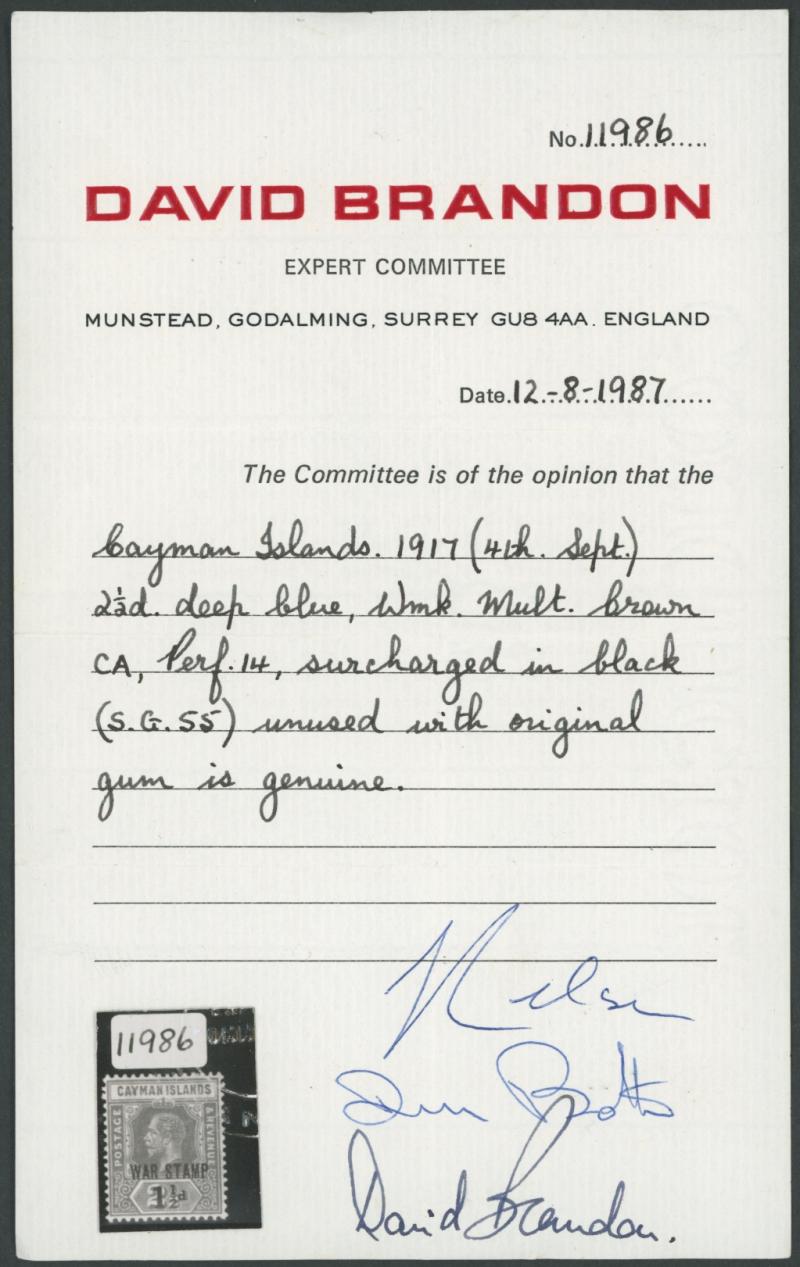 No. 11986
DAVID BRANDON
EXPERT COMMITTEE
MUNSTEAD, GODALMING, SURREY GU8 4AA. ENGLAND
Date. 12-8-1987
The Committee is of the opinion that the
Cayman Islands. 1917 (4th. Sept.)
2½d. deep blue, Wmk. Mult. Crown
CA, Perf. 14, surcharged in black
(S.G. 55) unused with original
gum is genuine.
11986
CAYMAN ISLANDS
POSTAGE & REVENUE
WAR STAMP
1½d
David Brandon.